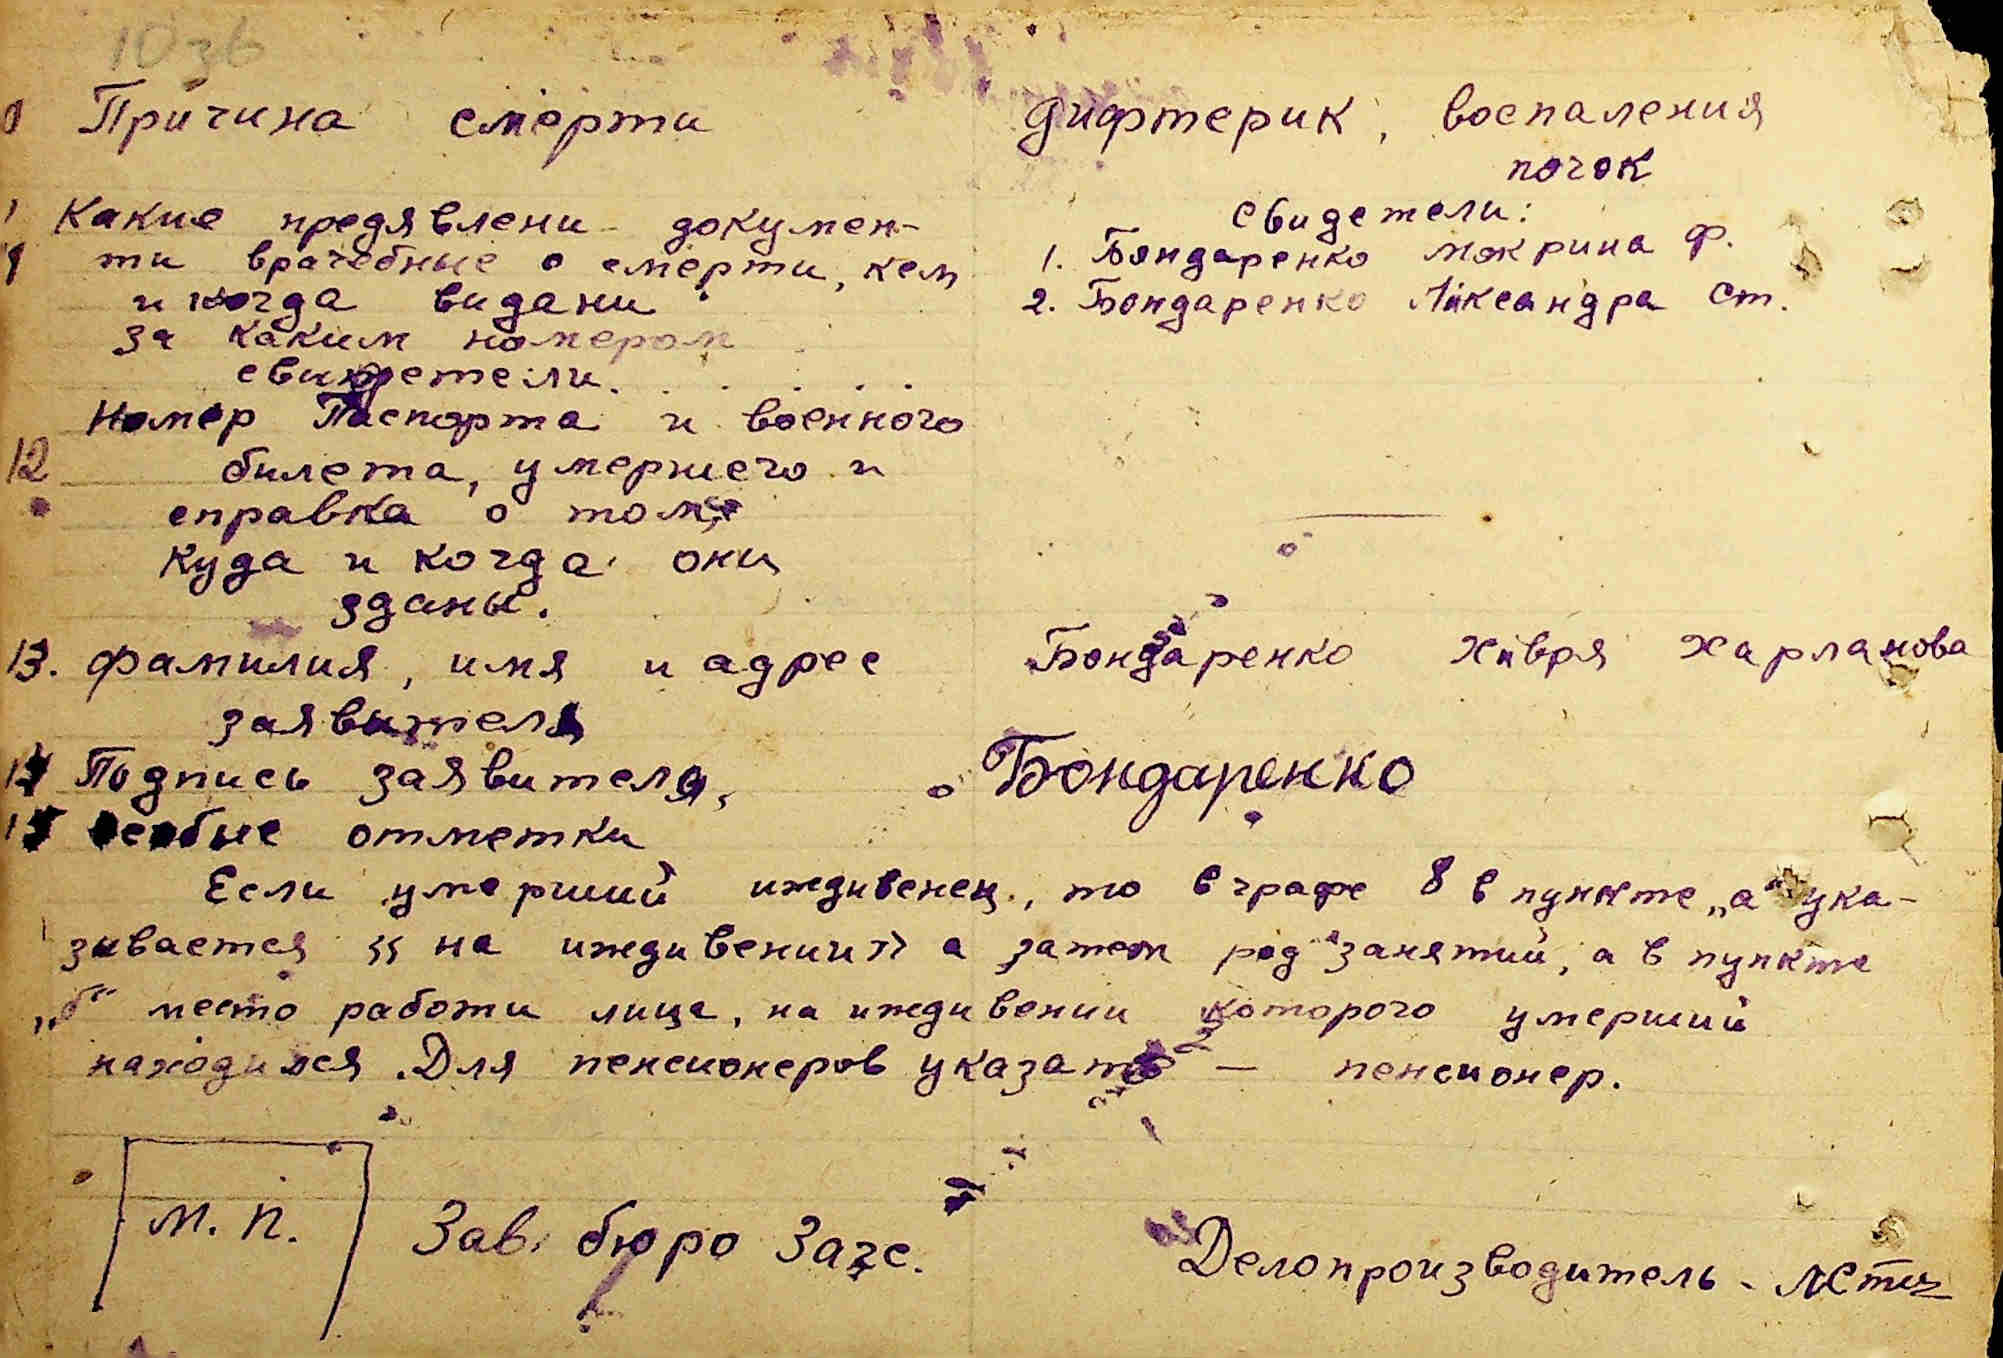 10 зв
Причина смерти дифтерик, воспаления
почок
Какие предявлени докумен-
свидетели:
ти врачебные о смерти, кем
1. Бондаренко Мокрина Ф.
и когда видани
2. Бондаренко Аликсандра Ст.
за каким номером
свидетели.
Номер Паспорта и военного
12 билета, умершего и
справка о том,
куда и когда они
зданы.
13. фамилия, имя и адрес Бондаренко Хивря Харланова
заявителя
14 Подпись заявителя, Бондаренко
15 особые отметки
Если умерший иждивенец, то в графе 8 в пункте „а" ука-
зивается «на иждивении» а затем род занятий, а в пункте
„б" место работи лица, на иждивении которого умерший
находился. Для пенсионеров указать — пенсионер.
М. П. Зав. бюро Загс. Делопроизводитель -